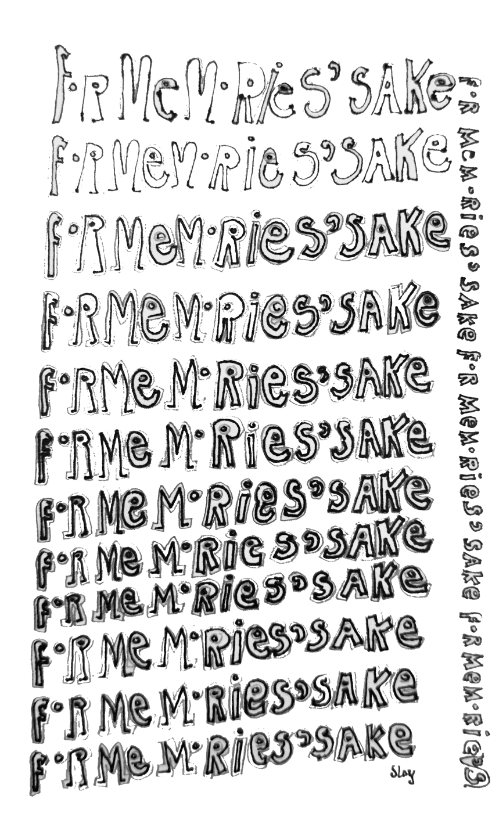 f·R MeM·Ries' SAKe
f·R MeMeM·Ries' SAKe
f·R MeM·Ries' SAKe
f·R MeM·Ries' SAKe
f·R Me M·Ries' SAKe
f·R Me M·Ries' SAKe
f·R Me M·Ries' SAKe
f·R Me M·Ries' SAKe
f·R Me M·Ries' SAKe
f·R Me M·Ries' SAKe
f·R Me M·Ries' SAKe
f·R Me M·Ries' SAKe
f·R MeM·Ries' SAKe f·R MeM·Ries' SAKe f·R MeM·Rie'S